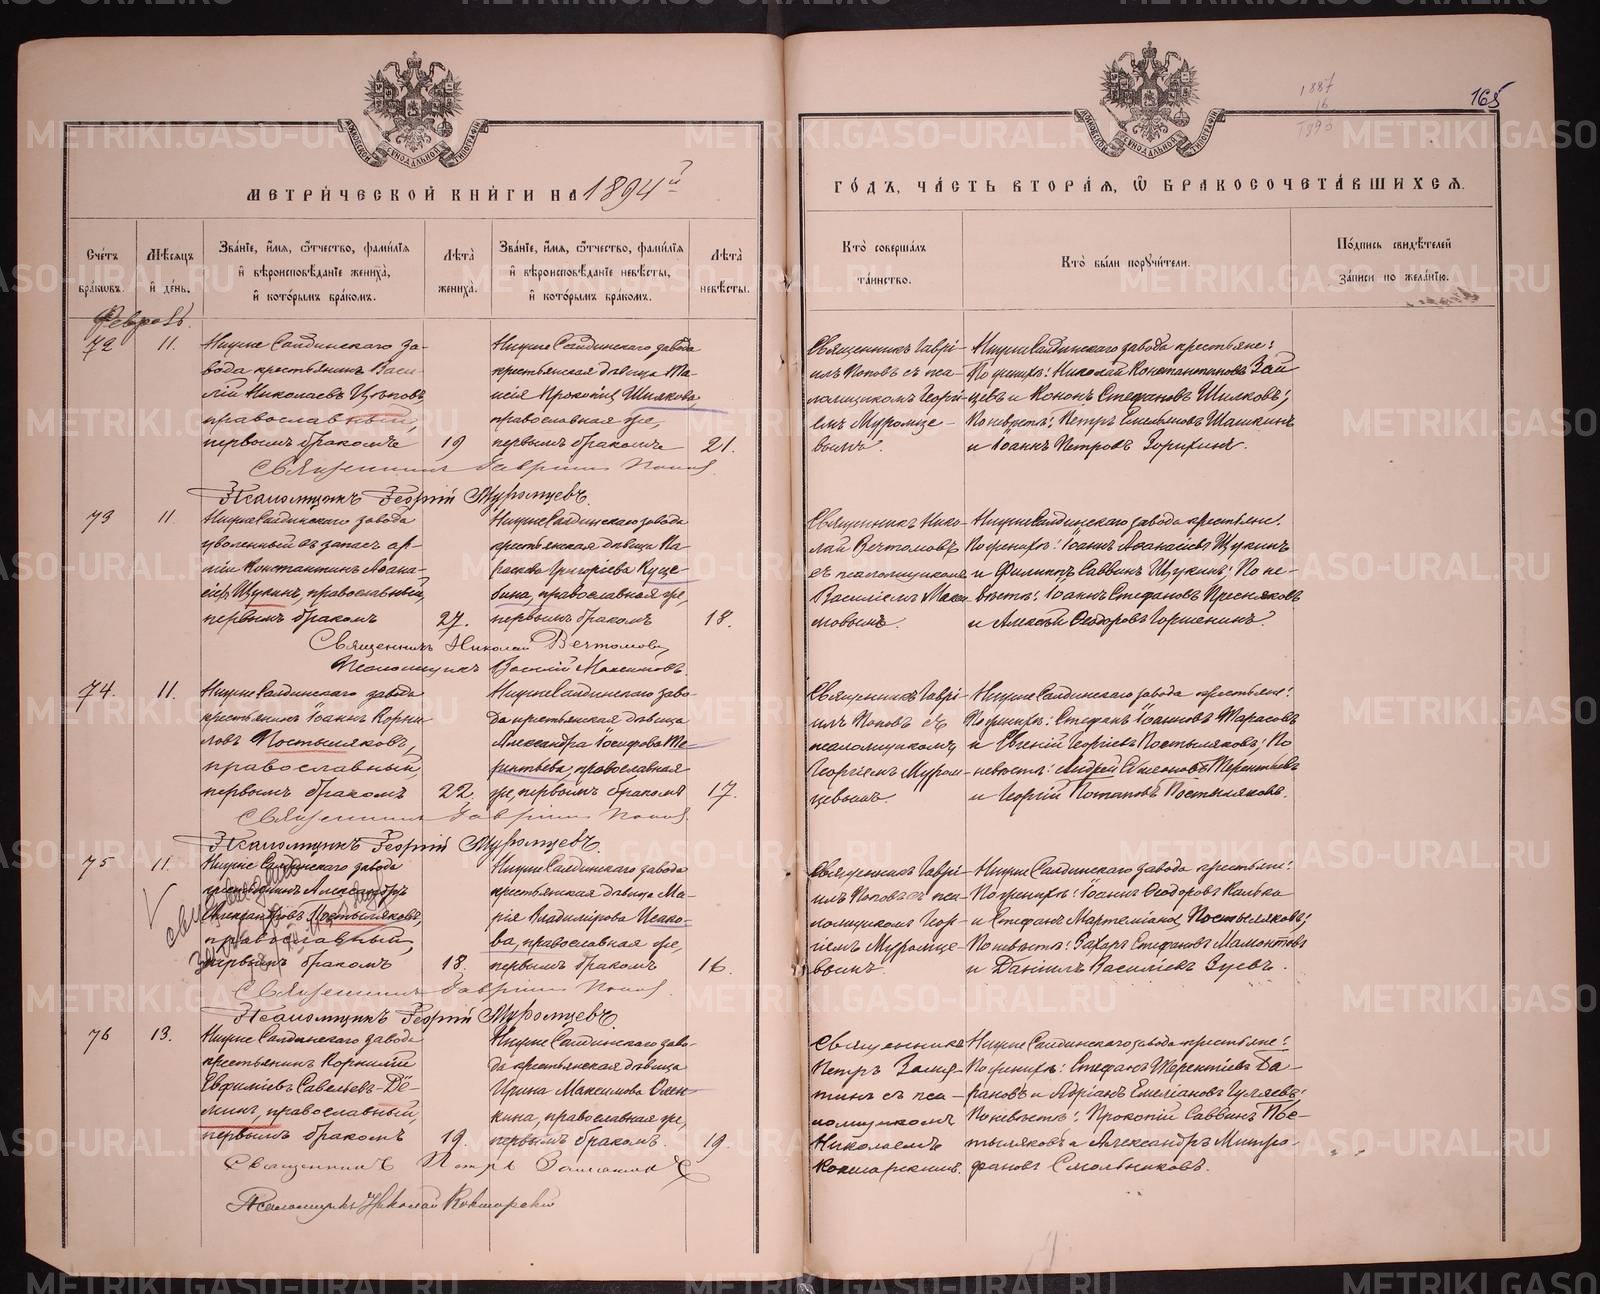 МЕТРИ́ЧЕСКОЙ КНИ́ГИ НА 1894й
ГО́ДЪ, ЧА́СТЬ ВТОРА́Я, Ѽ БРАКОСОЧЕТА́ВШИХСЯ.
165
1887
16
Сче́тъ бра́ковъ.
Мѣ́сяцъ и҆ де́нь.
Зва́нїе, и҆́мя, ѻ҆́тчество, фами́лїѧ и҆ вѣроисповѣ́данїе жениха̀, и҆ кото́рымъ бра́комъ.
Лѣ́та жениха̀.
Зва́нїе, и҆́мя, ѻ҆́тчество, фами́лїѧ и҆ вѣроисповѣ́данїе невѣ́сты, и҆ кото́рымъ бра́комъ.
Лѣ́та невѣ́сты.
Кто̀ соверша́лъ та́инство.
Кто̀ бы́ли порꙋчи́тели.
По́дпись свидѣ́телей за́писи по жела́нїю.
Февраль
72
11.
Нижне Салдинскаго за-
вода крестьянинъ Васи-
лій Николаевъ Цѣповъ,
православный,
первымъ бракомъ
19
Нижне Салдинскаго завода
крестьянская дѣвица Та-
исія Прокопіева Шилкова,
православная же,
первымъ бракомъ
21.
Священникъ Гаврі-
илъ Поповъ съ пса-
ломщикомъ Георгі-
емъ Муромце-
вымъ.
Нижне Салдинскаго завода крестьяне:
По женихѣ: Николай Константиновъ Зай-
цевъ и Кононъ Стефановъ Шилковъ;
По невѣстѣ: Петръ Емельяновъ Шашкинъ
и Іоаннъ Петровъ Зорихинъ.
Священникъ Гавріилъ Поповъ.
Псаломщикъ Георгій Муромцевъ.
73
11.
Нижне Салдинскаго завода
уволенный въ запасъ ар-
міи Константинъ Аѳана-
сіевъ Щукинъ, православный,
первымъ бракомъ
27.
Нижне Салдинскаго завода
крестьянская дѣвица Па-
раскева Григоріева Куце-
вина, православная же,
первымъ бракомъ
18.
Священникъ Нико-
лай Вечтомовъ
съ псаломщикомъ
Василіемъ Макси-
мовымъ.
Нижне Салдинскаго завода крестьяне:
По женихѣ: Іоаннъ Аѳанасіевъ Щукинъ
и Филиппъ Саввинъ Щукинъ; По не-
вѣстѣ: Іоаннъ Стефановъ Пресняковъ
и Алексѣй Ѳеодоровъ Горшенинъ.
Священникъ Николай Вечтомовъ
Псаломщикъ Василій Максимовъ.
74.
11.
Нижне Салдинскаго завода
крестьянинъ Іоаннъ Корни-
ловъ Постыляковъ,
православный,
первымъ бракомъ
22.
Нижне Салдинскаго заво-
да крестьянская дѣвица
Александра Іосифова Те-
рентьева, православная
же, первымъ бракомъ
17.
Священникъ Гаврі-
илъ Поповъ съ
псаломщикомъ
Георгіемъ Муром-
цевымъ.
Нижне Салдинскаго завода крестьяне:
По женихѣ: Стефанъ Іоанновъ Тарасовъ
и Евгеній Георгіевъ Постыляковъ; По
невѣстѣ: Андрей Терентьевъ
и Георгій Потаповъ Постыляковъ.
Священникъ Гавріилъ Поповъ.
Псаломщикъ Георгій Муромцевъ.
75
11.
Нижне Салдинскаго завода
крестьянинъ Александръ
Александровъ Постыляковъ,
православный,
первымъ бракомъ
18.
Нижне Салдинскаго завода
крестьянская дѣвица Ма-
рія Владимірова Исако-
ва, православная же,
первымъ бракомъ
16.
Священникъ Гаврі-
илъ Поповъ съ пса-
ломщикомъ Геор-
гіемъ Муромце-
вымъ.
Нижне Салдинскаго завода крестьяне:
По женихѣ: Іоаннъ Ѳеодоровъ Калька
и Стефанъ Мартеміановъ Постыляковъ;
По невѣстѣ: Захаръ Стефановъ Мамонтовъ
и Даніилъ Василіевъ Зуевъ.
Священникъ Гавріилъ Поповъ.
Псаломщикъ Георгій Муромцевъ.
76
13.
Нижне Салдинскаго завода
крестьянинъ Корнилій
Евфиміевъ Савельевъ-Дё-
минъ, православный,
первымъ бракомъ
19.
Нижне Салдинскаго заво-
да крестьянская дѣвица
Ирина Максимова Олен-
кина, православная же,
первымъ бракомъ.
19.
Священникъ
Петръ Замя-
тинъ съ пса-
ломщикомъ
Николаемъ
Кокшарскимъ.
Нижне Салдинскаго завода крестьяне:
По женихѣ: Стефанъ Терентіевъ Ба-
рановъ и Адріанъ Емеліановъ Гуляевъ;
По невѣстѣ: Прокопій Саввинъ Пос-
тыляковъ и Александръ Митро-
фановъ Смольниковъ.
Священникъ Петръ Замятинъ
Псаломщикъ Николай Кокшарскій
METRIKI.GASO-URAL.RU